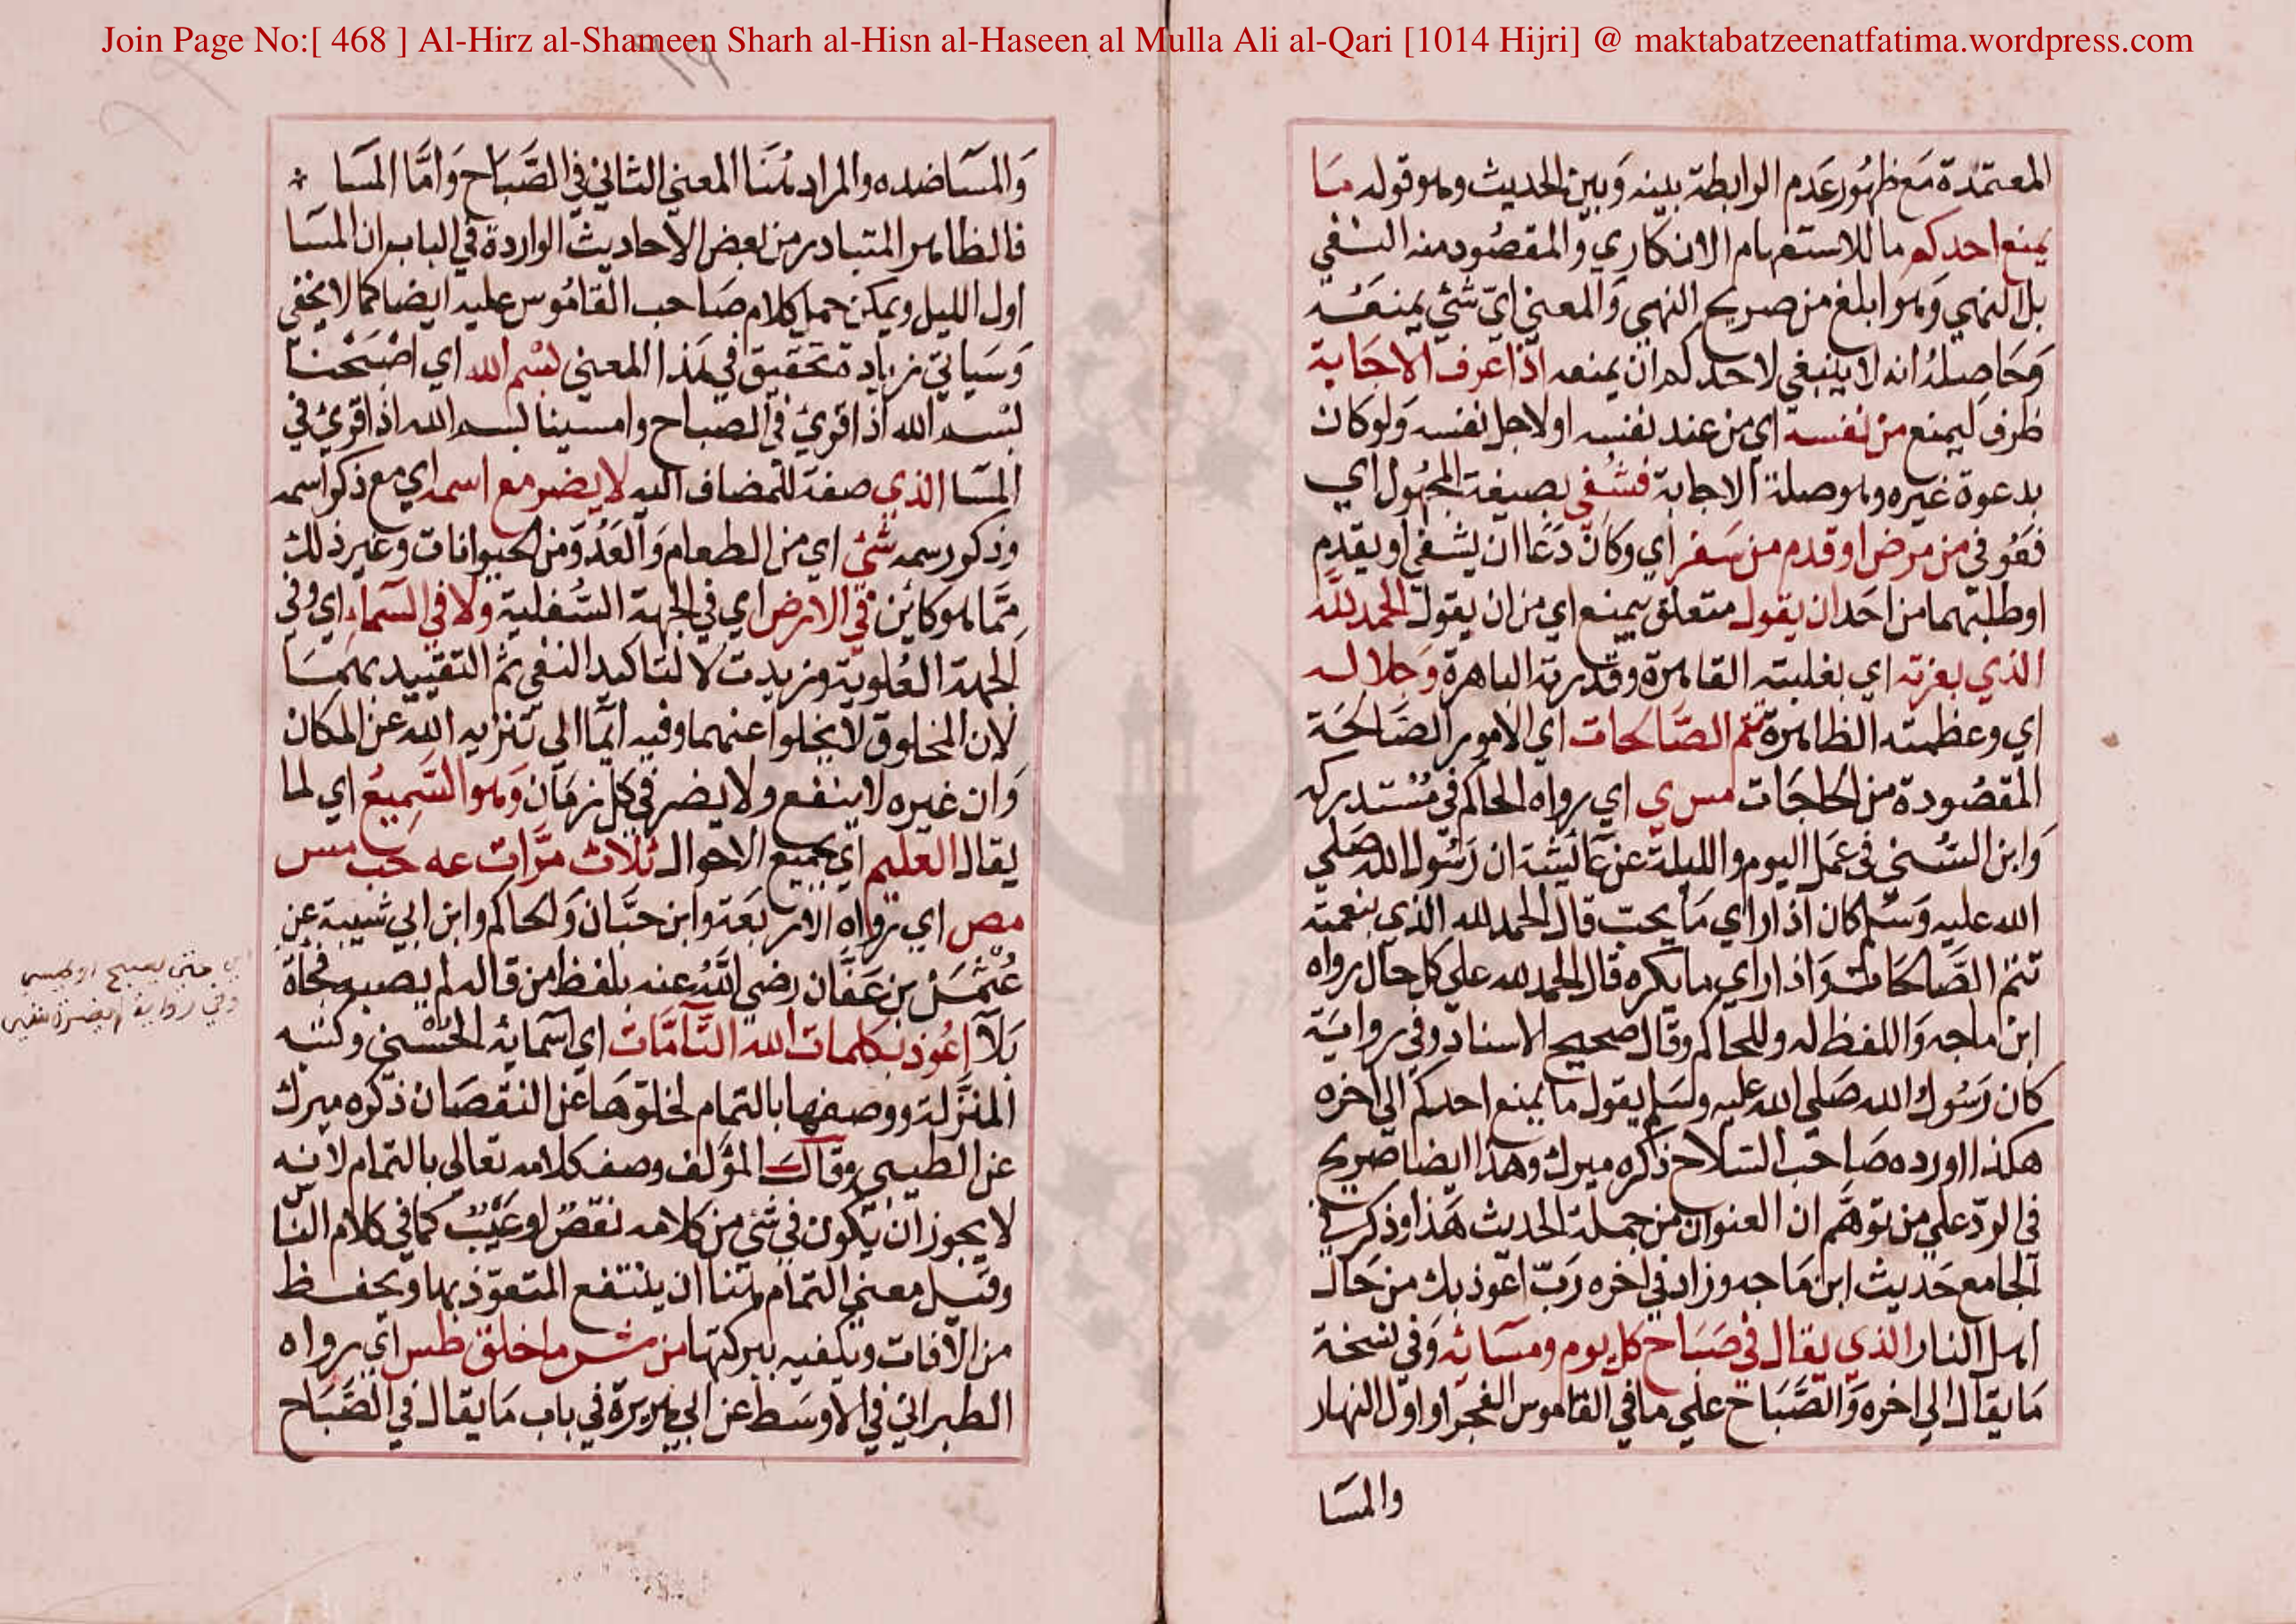 Join Page No:[ 468 ] Al-Hirz al-Shameen Sharh al-Hisn al-Haseen al Mulla Ali al-Qari [1014 Hijri] @ maktabatzeenatfatima.wordpress.com
المعتمدة مع ظهور عدم الرابطة بينه وبين الحديث وهو قوله ما
يمنع احدكم ما للاستفهام الانكاري والمقصود منه النفي
بل النهي وهو ابلغ من صريح النهي والمعني اي شئ يمنعه
وحاصله انه لا ينبغي لاحدكم ان يمنعه اذا عرف الاجابة
ظرف ليمنع من نفسه اي من عند نفسه او لاجل نفسه ولو كان
بدعوة غيره وهو صلة الاجابة فشفي بصيغة المجهول اي
فعوفي من مرض او قدم من سفر اي وكان دعا ان يشفي او يقدم
او طلبهما من احد ان يقول متعلق بيمنع اي من ان يقول الحمد لله
الذي بعزته اي بغلبته القاهرة وقدرته الباهرة وجلاله
اي وعظمته الظاهرة تتم الصالحات اي الامور الصالحة
المقصودة من الحاجات مس ي اي رواه الحاكم في مستدركه
وابن السني في عمل اليوم والليلة عن عائشة ان رسول الله صلي
الله عليه وسلم كان اذا راي ما يحب قال الحمد لله الذي بنعمته
تتم الصالحات واذا راي ما يكره قال الحمد لله علي كل حال رواه
ابن ماجه واللفظ له وللحاكم وقال صحيح الاسناد وفي رواية
كان رسول الله صلي الله عليه وسلم يقول ما يمنع احدكم الي اخره
هكذا اورده صاحب السلاح ذكره ميرك وهذا ايضا صريح
في الرد علي من توهم ان العنوان من جملة الحديث هذا وذكر في
الجامع حديث ابن ماجه وزاد في اخره رب اعوذ بك من حال
اهل النار الذي يقال في صباح كل يوم ومسائه وفي نسخة
ما يقال الي اخره والصباح علي ما في القاموس الفجر او اول النهار
والمسا
والمسا ضده والمراد هنا المعني الثاني في الصباح واما المسا
فالظاهر المتبادر من بعض الاحاديث الواردة في الباب ان المسا
اول الليل ويمكن حمل كلام صاحب القاموس عليه ايضا كما لا يخفي
وسياتي زيادة تحقيق في هذا المعني بسم الله اي اصبحنا
بسم الله اذا قوئ في الصباح وامسينا بسم الله اذا قرئ في
المسا الذي صفة للمضاف اليه لا يضر مع اسمه اي مع ذكر اسمه
وذكور سمه شئ اي من الطعام والعدو من الحيوانات وغير ذلك
مما هو كائن في الارض اي في الجهة السفلية ولا في السماء اي وفي
الجهة العلوية وزيدت لا لتاكيد النفي ثم التقييد بهما
لان المخلوق لا يخلوا عنهما وفيه ايماالي تنزيه الله عن المكان
وان غيره لا ينفع ولا يضر في كل زمان وهو السميع اي لما
يقال العليم اي بجميع الاحوال ثلاث مرات عه حب مس
مص اي رواه الاربعة وابن حبان والحاكم وابن ابي شيبة عن
عثمن بن عفان رضي الله عنه بلفظ من قاله لم يصبه فجأة
بلا اعوذ بكلمات الله التامات اي اسمائه الحسني وكتبه
المنزلة ووصفها بالتمام لخلوها عن النقصان ذكره ميرك
عن الطيبي وقال المؤلف وصف كلامه تعالي بالتمام لانه
لا يجوز ان يكون في شئ من كلامه نقص او عيب كما في كلام الناس
وقيل معني التمام هنا ان ينتفع المتعوذ بها ويحفظ
من الآفات ويكفيه ببركتها من شر ما خلق طس اي رواه
الطبراني في الاوسط عن ابي هريرة في باب ما يقال في الصباح
حتي يصبح او يمسي
وفي رواية